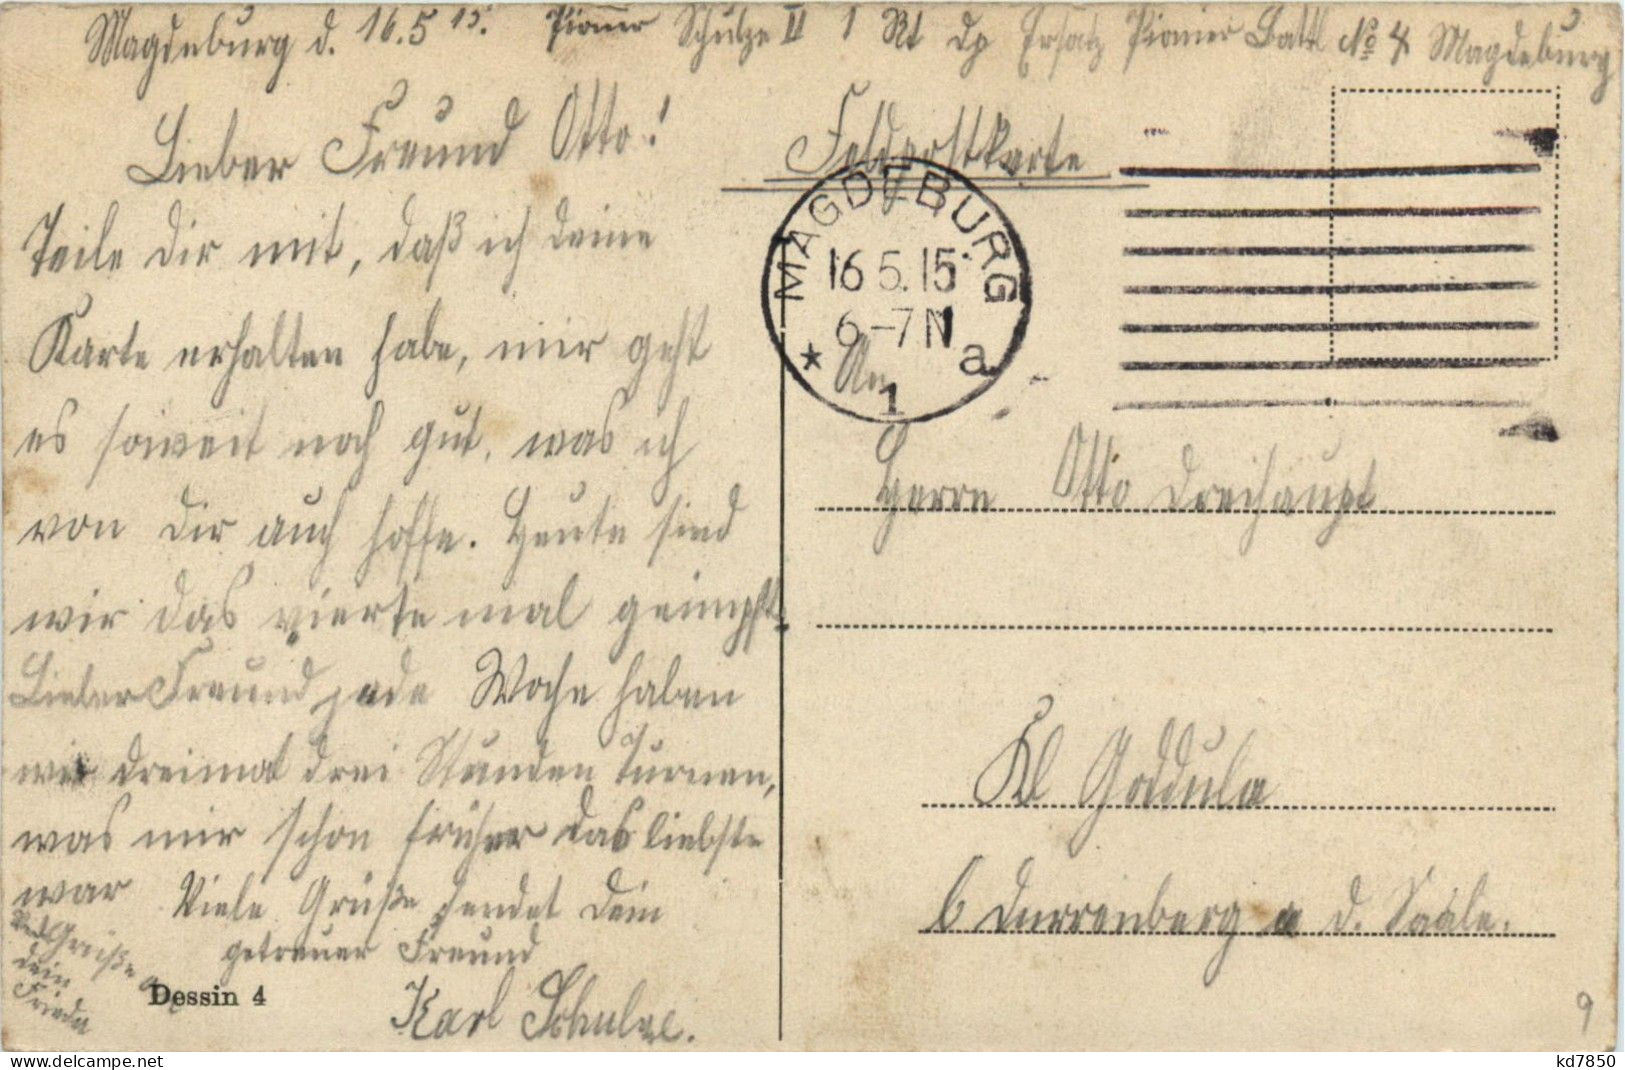 Magdeburg d. 16.5 15. Pionier Schulze II 1 Rt Dp Ersatz Pionier Batl No 4 Magdeburg
Lieber Freund Otto!
Teile dir mit, daß ich deine
Karte erhalten habe, mir geht
es soweit noch gut, was ich
von dir auch hoffe. Heute sind
wir das vierte mal geimpft.
Lieber Freund jede Woche haben
wir dreimal drei Stunden Turnen,
was mir schon früher das liebste
war Viele Grüße sendet dein
getreuer Freund
Karl Schulze.
Viel Grüße
dein
Frieda
Dessin 4
Feldpostkarte
MAGDEBURG
16 5. 15
6-7 N
* 1 a
An
Herrn Otto Dreihaupt
Kl Goddula
b Dürrenberg a d. Saale.
9
kd7850